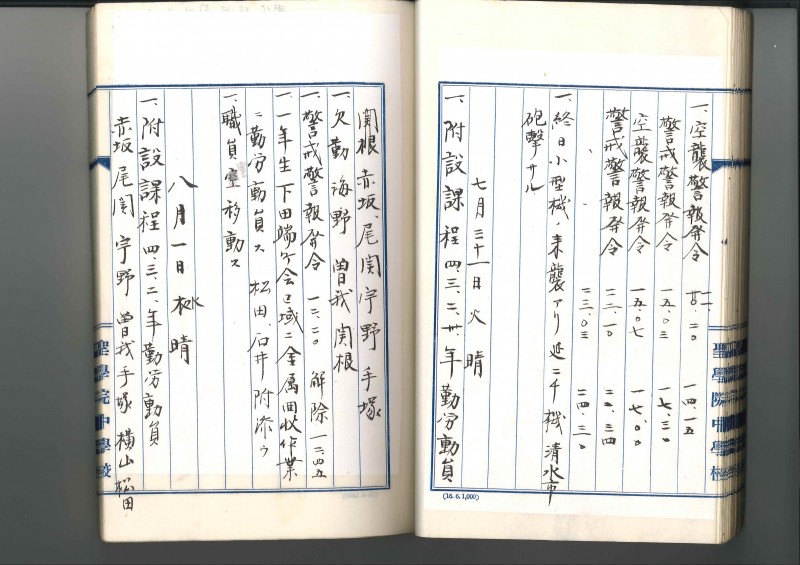 一、空襲警報発令 一二.二〇 一四.一五
警戒警報発令 一五.〇三 一七.三〇
空襲警報発令 一五.〇七 一七.〇〇
警戒警報発令 二二.一〇 二二.三四
〃 二三.〇三 二四.三〇
一、終日小型機ノ来襲アリ延二千機清水市
砲撃サル
七月三十一日火 晴
一、附設課程四、三、二、廿年勤労動員
関根 赤坂、尾関 宇野 手塚
一、欠勤 海野 曽我 関根
一、警戒警報発令 一二.二〇 解除 一二.四五
一、一年生下田端町会区域ニ金属回収作業
ニ勤労動員ス 松田、石井附添ウ
一、職員室移動ス
八月一日水 晴
一、附設課程四、三、二、年勤労動員
赤坂 尾関 宇野 曽我 手塚 横山 松田
聖學院中學校
聖學院中學校
(16. 6. 1,000)